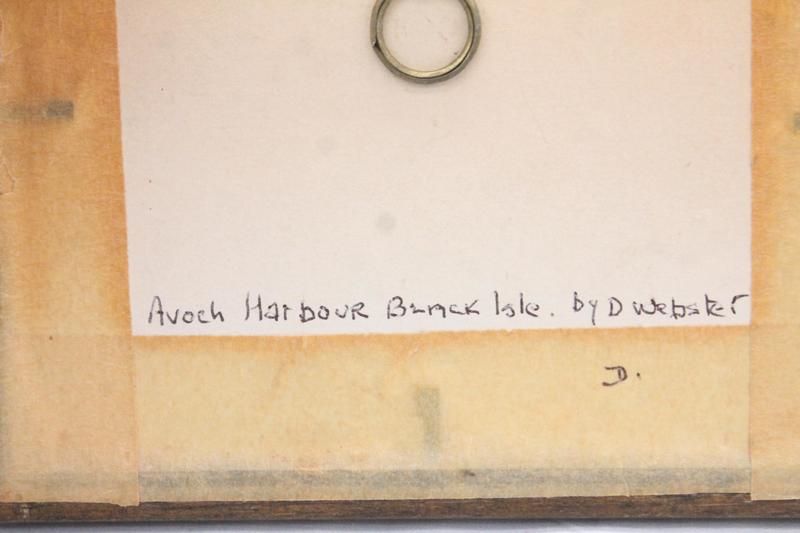 Avoch Harbour Black Isle. by D Webster
D.